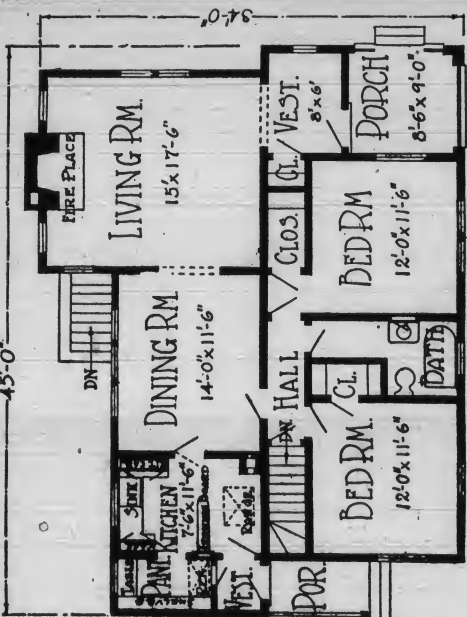 34'-0"
45'-0"
FIRE PLACE
LIVING RM.
15'x 17'-6"
VEST.
8'x6'
PORCH
8-6"x 9'-0"
CL.
CLOS.
BED RM
12'-0"x 11'-6"
DN
DINING RM.
14'-0"x 11'-6"
HALL
DN
CL.
BATH
BED RM.
12'-0"x 11'-6"
SINK
KITCHEN
7'-6"x 11'-6"
RANGE
TABLE
PANT.
VEST.
POR.